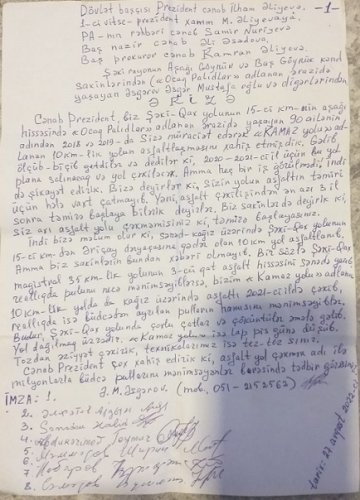 Dövlət başçısı Prezident cənab İlham Əliyevə. -1-
1-ci vitse-prezident xanım M. Əliyevaya.
PA-nın rəhbəri cənab Samir Nuriyevə
Baş nazir cənab Əli Əsədova.
Baş prokuror cənab Kamran Əliyevə.
Şəki rayonun Aşağı Göynük və Baş Göynük kənd
sakinlərindən («Ocaq Palıdlar» adlanan ərazidə
yaşayan Əsgərov Əsgər Mustafa oğlu və digərlərindən
Ə R İ Z Ə
Cənab Prezident, biz Şəki-Qax yolunun 15-ci km-nin aşağı
hissəsində «Ocaq Palıdlar» adlanan ərazidə yaşayan 90 ailənin
adından 2018 və 2019-da Sizə müraciət edərək «KAMAZ yolu» ad-
lanan 10 km-lik yolun asfaltlaşmasını xahiş etmişdik. Gəlib
ölçüb-biçib getdilər və dedilər ki, 2020-2021-ci il üçün bu yol
plana salınacaq və yol çəkiləcək. Amma heç bir iş görülmədi, indi
də şikayət edirik. Bizə deyirlər ki, Sizin yolun asfaltın təmiri
üçün hələ vaxt çatmayıb. Yəni, asfalt çəkilişindən ən azı 5 il
sonra təmirə başlaya bilərik deyirlər. Biz sakinlər də deyirik ki,
Siz axı asfalt yolu çəkməmisiniz ki, təmirə başlayasınız.
İndi bizə məlum olur ki, sənəd-kağız üzərində Şəki-Qax yolunun
15-ci km-dən əraziyə qədər olan 10 km yol asfaltlanıb.
Amma biz sakinlərin bundan xəbəri olmayıb. Biz Sizə Şəki-Qax
magistral 35 km-lik yolunun 3-cü qat asfalt hissəsini sənəddə yazıb
reallıqda pulunu necə mənimsəyiblərsə, bizim «Kamaz yolu» adlanan
10 km-lik yolda da kağız üzərində asfaltı 2021-ci ildə çəkib,
reallıqda isə büdcədən ayrılan pulların hamısını mənimsəyiblər.
Budur, Şəki-Qax yolunda çoxlu çatlar və çöküntülər əmələ gəlib.
Yol dağılmaq üzrədir. «Kamaz yolu» isə lap pis günə düşüb.
Tozdan əziyyət çəkirik, texnikalarımız isə tez-tez sınır.
Cənab Prezident, çox xahiş edirik ki, asfalt yol çəkmək adı ilə
milyonlarla büdcə pullarını mənimsəyənlər barəsində tədbir görəsiniz.
İMZA: 1. Ə.M. Əsgərov. (mob. 051-2152562)
2.
3.
4.
5.
6.
7.
8.
Tarix: 27 avqust 2022.